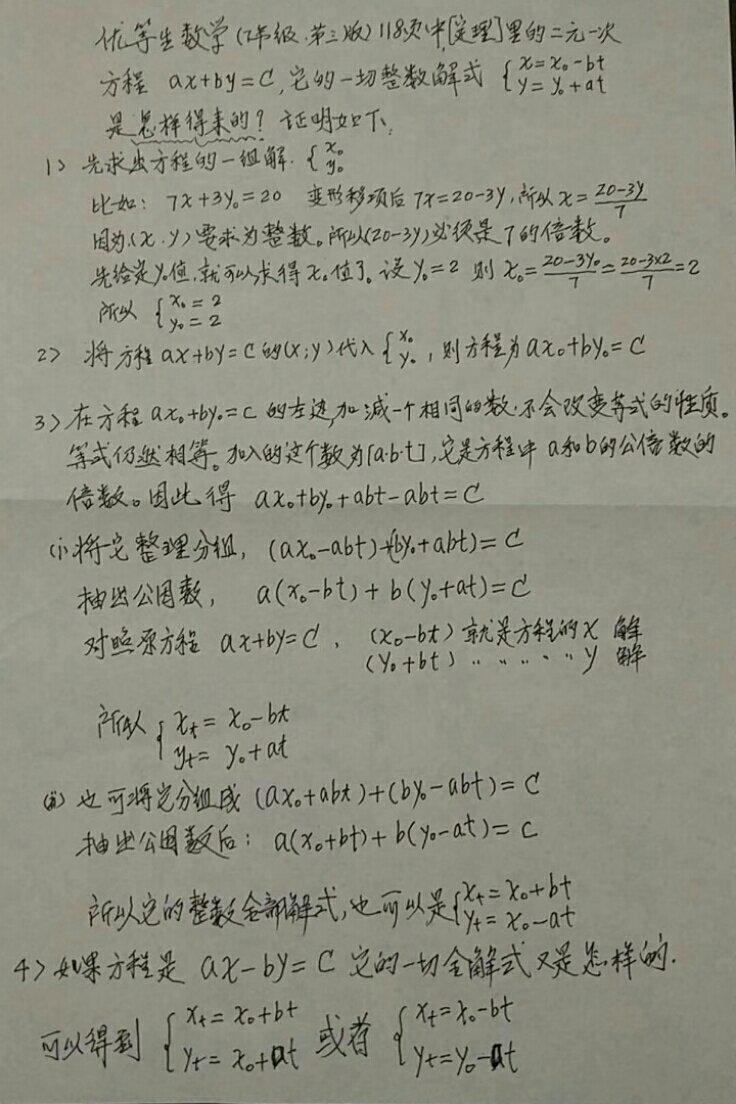 优等生数学(7年级.第三版)118页中[定理]里的二元一次
方程 ax+by=C,它的一切整数解式 {x=x₀-bt y=y₀+at
是怎样得来的? 证明如下。
1> 先求出方程的一组解. {x₀ y₀
比如: 7x+3y₀=20 变形移项后 7x=20-3y,所以 x=(20-3y)/7
因为(x.y)要求为整数。所以(20-3y)必须是7的倍数。
先给定y₀值,就可以求得x₀值了。设y₀=2 则 x₀=(20-3y₀)/7=(20-3×2)/7=2
所以 {x₀=2 y₀=2
2> 将方程 ax+by=C 的(x;y)代入{x₀ y₀,则方程为ax₀+by₀=C
3> 在方程 ax₀+by₀=c 的左边,加减一个相同的数.不会改变等式的性质。
等式仍然相等。加入的这个数为[a·b·t],它是方程中 a和b的公倍数的
倍数。因此得 ax₀+by₀+abt-abt=C
(i)将它整理分组, (ax₀-abt)+(by₀+abt)=C
抽出公因数, a(x₀-bt)+b(y₀+at)=C
对照原方程 ax+by=C, (x₀-bt)就是方程的x 解
(y₀+bt) 〃 〃 〃 〃 〃 y 解
所以 {xt=x₀-bt yt=y₀+at
(ii) 也可将它分组成 (ax₀+abt)+(by₀-abt)=C
抽出公因数后: a(x₀+bt)+b(y₀-at)=c
所以它的整数全部解式,也可以是{xt=x₀+bt yt=x₀-at
4> 如果方程是 ax-by=C 它的一切全解式又是怎样的.
可以得到 {xt=x₀+bt yt=x₀+at 或者 {xt=x₀-bt yt=y₀-at